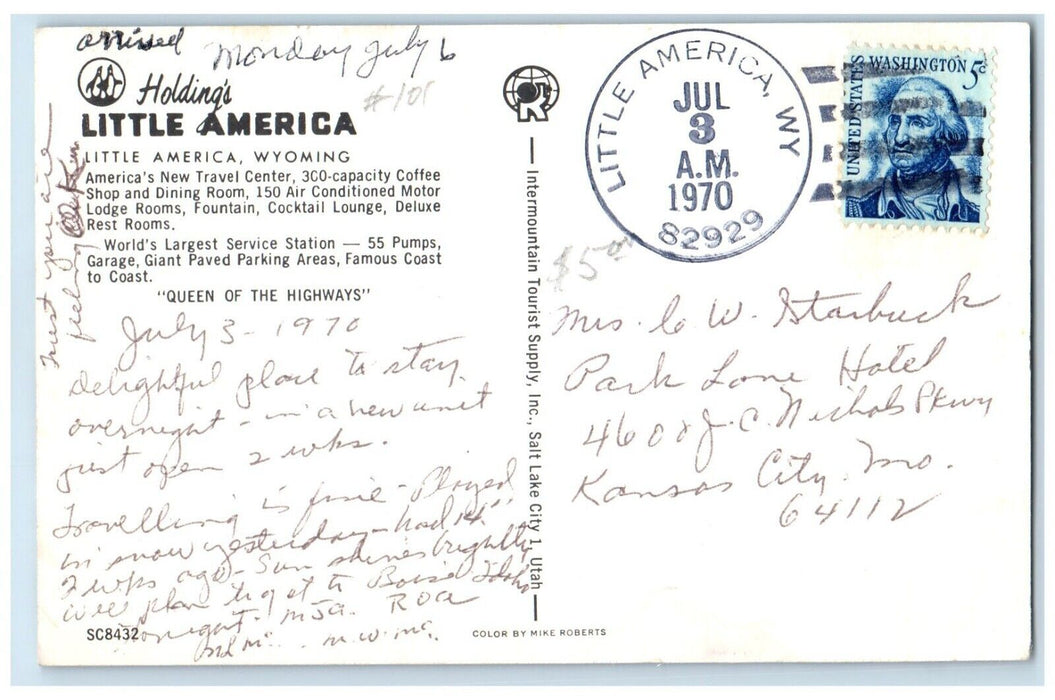 arrived Monday July 6
#101
Holding's
LITTLE AMERICA
LITTLE AMERICA, WYOMING
America's New Travel Center, 300-capacity Coffee
Shop and Dining Room, 150 Air Conditioned Motor
Lodge Rooms, Fountain, Cocktail Lounge, Deluxe
Rest Rooms.
World's Largest Service Station — 55 Pumps,
Garage, Giant Paved Parking Areas, Famous Coast
to Coast.
"QUEEN OF THE HIGHWAYS"
Trust you are
feeling
July 3 - 1970
Delightful place to stay
overnight - in a new unit
just open 2 wks.
Travelling is fine - Played
in snow yesterday - had 14"
2 wks ago - Sun shines brightly
will plan to get to Boise Idaho
tonight -
SC8432
COLOR BY MIKE ROBERTS
Intermountain Tourist Supply, Inc., Salt Lake City 1, Utah
LITTLE AMERICA, WY
JUL
3
A.M.
1970
82929
UNITED STATES
WASHINGTON 5c
$5.00
Mrs. C W. Starbuck
Park Lane Hotel
4600 J. C. Nichols Pkwy
Kansas City, Mo.
64112